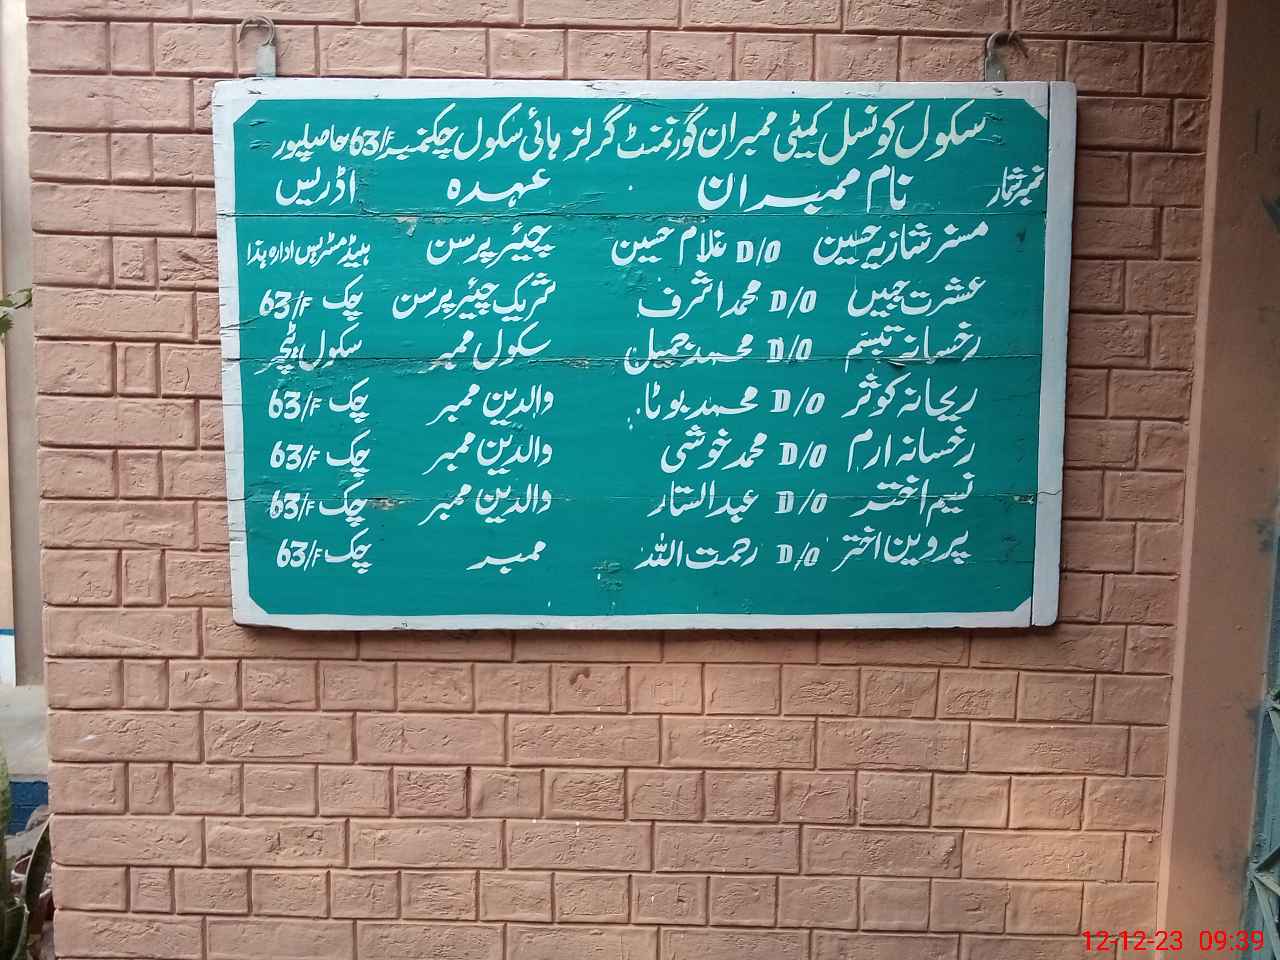 سکول کونسل کمیٹی ممبران گورنمنٹ گرلز ہائی سکول چکنمبر 63/F حاصلپور
نمبرشمار نام ممبران عہدہ اڈریس
مسز شازیہ حسین D/O غلام حسین چیئرپرسن ہیڈمسٹریس ادارہ ہذا
عشرت جبیں D/O محمد اشرف شریک چیئرپرسن چک 63/F
رخسانہ تبسم D/O محمد جمیل سکول ممبر سکول ٹیچر
ریحانہ کوثر D/O محمد بوٹا والدین ممبر چک 63/F
رخسانہ ارم D/O محمد خوشی والدین ممبر چک 63/F
نسیم اختر D/O عبدالستار والدین ممبر چک 63/F
پروین اختر D/O رحمت اللہ ممبر چک 63/F
12-12-23 09:39